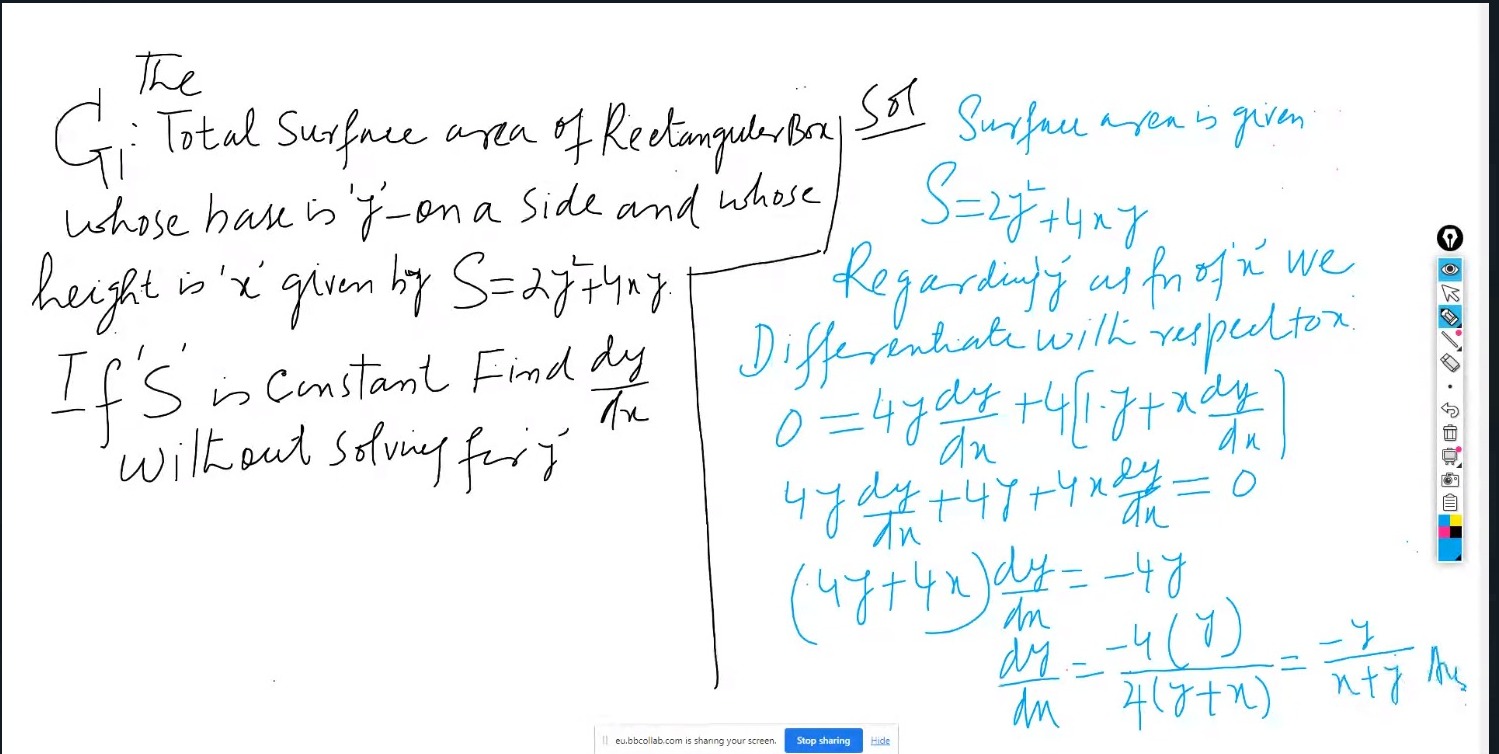 The
G1: Total Surface area of Rectanguler Box
whose base is 'y' - on a side and whose
height is 'x' given by S=2y²+4xy.
If 'S' is Constant Find dy/dx
without solving for 'y'
Sol Surface area is given
S=2y²+4xy
Regarding 'y' as fn of 'x' we
Differentiate with respect to x.
0 = 4y dy/dx + 4[1·y + x dy/dx]
4y dy/dx + 4y + 4x dy/dx = 0
(4y+4x) dy/dx = -4y
dy/dx = -4(y)/4(y+x) = -y/x+y Ans
eu.bbcollab.com is sharing your screen. Stop sharing Hide